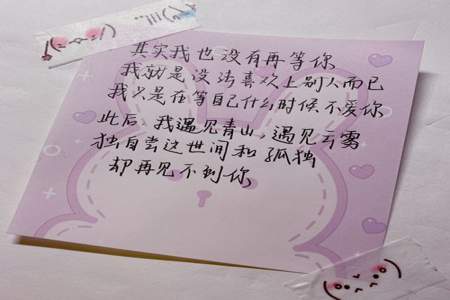 其实我也没有再等你
我就是没法喜欢上别人而已
我只是在等自己什么时候不爱你
此后，我遇见青山，遇见云雾
独自尝这世间和孤独
却再见不到你